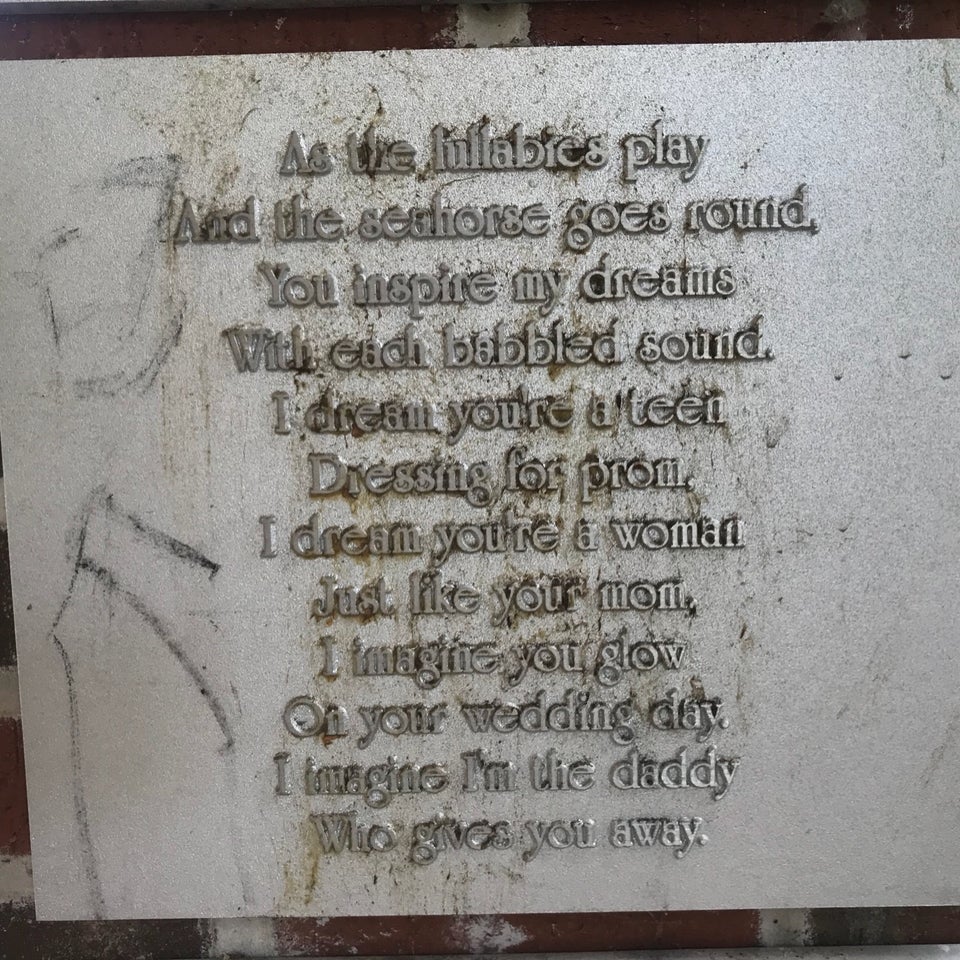 As the lullabies play
And the seahorse goes round,
You inspire my dreams
With each babbled sound.
I dream you're a teen
Dressing for prom,
I dream you're a woman
Just like your mom,
I imagine you glow
On your wedding day.
I imagine I'm the daddy
Who gives you away.